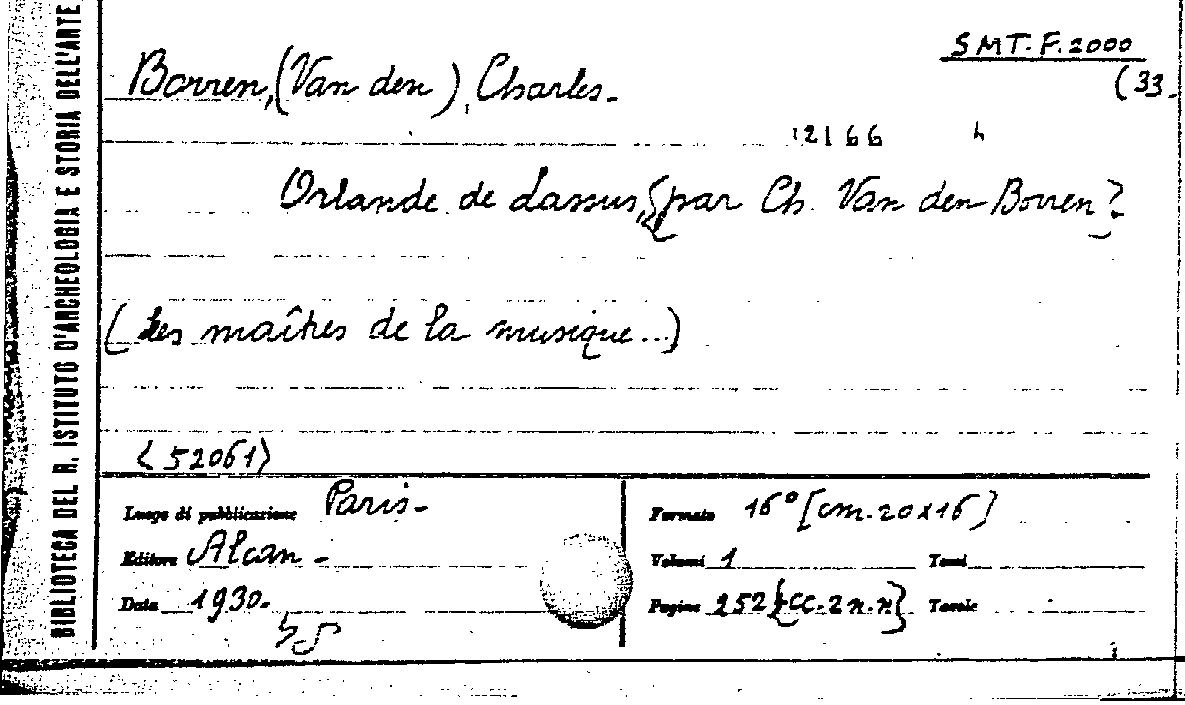 BIBLIOTECA DEL R. ISTITUTO D'ARCHEOLOGIA E STORIA DELL'ARTE
SMT. F. 2000
(33.
Borren, (Van den), Charles.
12166
Orlande de Lassus, [par Ch. Van den Borren].
(Les maîtres de la musique...)
<52061>
Luogo di pubblicazione Paris.
Editore Alcan.
Data 1930.
Formato 16° [cm. 20x16]
Volumi 1 Tomi
Pagine 252 [cc. 2 n. n] Tavole